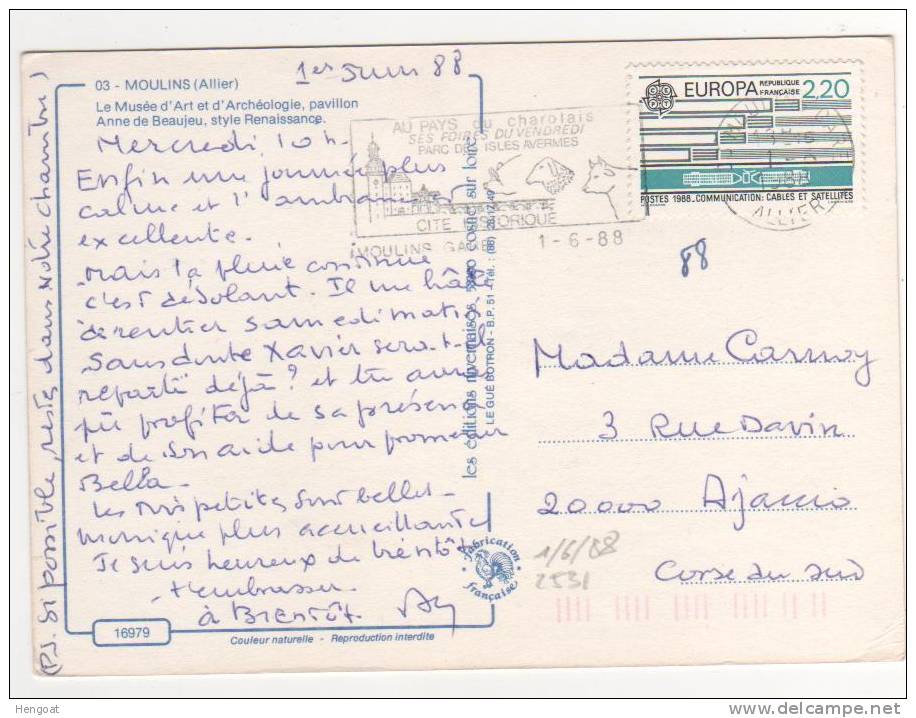 03 - MOULINS (Allier)
Le Musée d'Art et d'Archéologie, pavillon
Anne de Beaujeu, style Renaissance.
1er Juin 88
Mercredi 10 h.
Enfin une journée plus
calme et l'ambiance
excellente.
Mais la pluie continue
c'est désolant. Il me hâte
de rentrer samedi matin,
Sans doute Xavier sera-t-il
reparti déjà? et tu auras
pu profiter de sa présence
et de son aide pour promener
Bella.
Les trois petites sont belles
monique plus accueillante
Je suis heureux de bientôt
t'embrasser
à Bientôt
(P.S. Si possible, reste dans Notre chambre)
16979
Couleur naturelle - Reproduction interdite
les éditions nivernaises cosne sur loire
LE GUE BOTRON - B.P. 51 - Tél. : (86)
Fabrication Française
AU PAYS du charolais
SES FOIRES DU VENDREDI
PARC DES ISLES AVERMES
CITE HISTORIQUE
MOULINS GARE
1-6-88
EUROPA
REPUBLIQUE FRANÇAISE
2,20
CEPT
POSTES 1988 COMMUNICATION: CABLES ET SATELLITES
ALLIER
88
Madame Carnoy
3 Rue Davin
20000 Ajaccio
Corse du sud
1/6/88
2531
Hengoat
www.delcampe.net